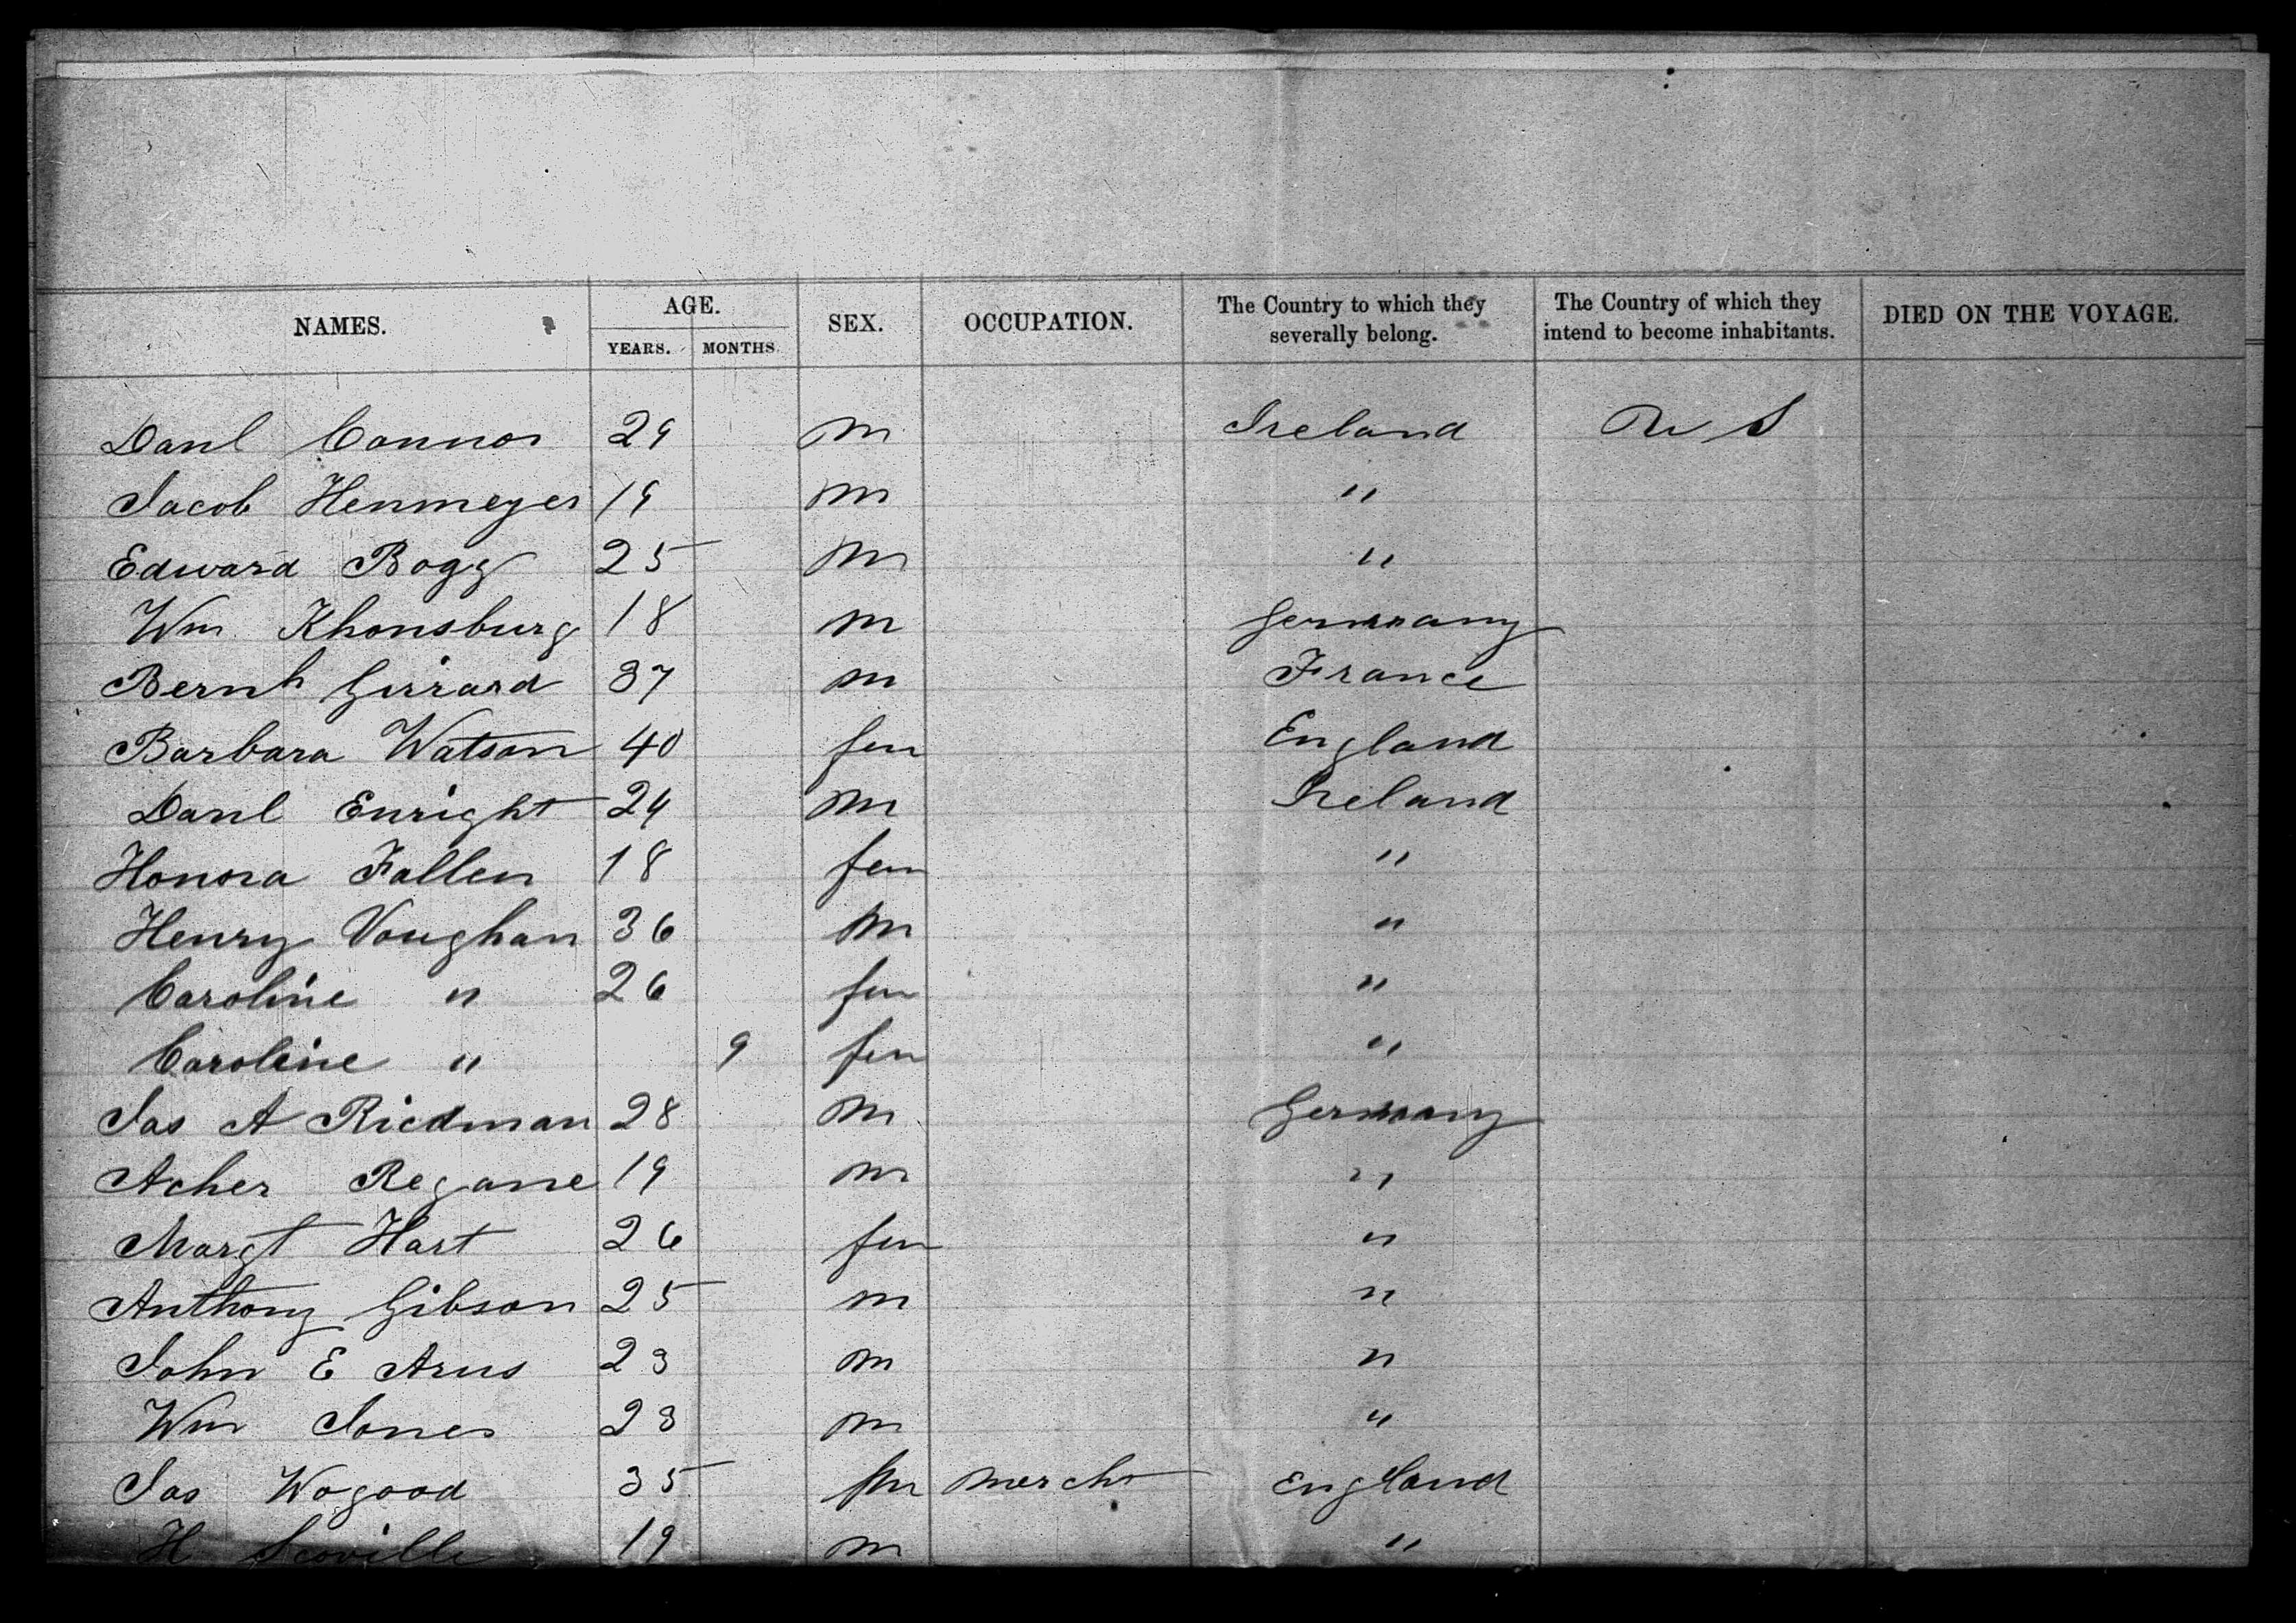 NAMES. AGE. SEX. OCCUPATION. The Country to which they severally belong. The Country of which they intend to become inhabitants. DIED ON THE VOYAGE.
YEARS. MONTHS.
Danl Connor 29 m Ireland U S
Jacob Henmeyer 19 m "
Edward Bogg 25 m "
Wm Khonsburg 18 m Germany
Bernh Girrard 37 m France
Barbara Watson 40 fem England
Danl Enright 24 m Ireland
Honora Fallen 18 fem "
Henry Vaughan 36 m "
Caroline " 26 fem "
Caroline " 9 fem "
Jas A Riedman 28 m Germany
Acher Regane 19 m "
Margt Hart 26 fem "
Anthony Gibson 25 m "
John E Arus 23 m "
Wm Jones 23 m "
Jas Wogood 35 m mercht England
H Scoville 19 m "